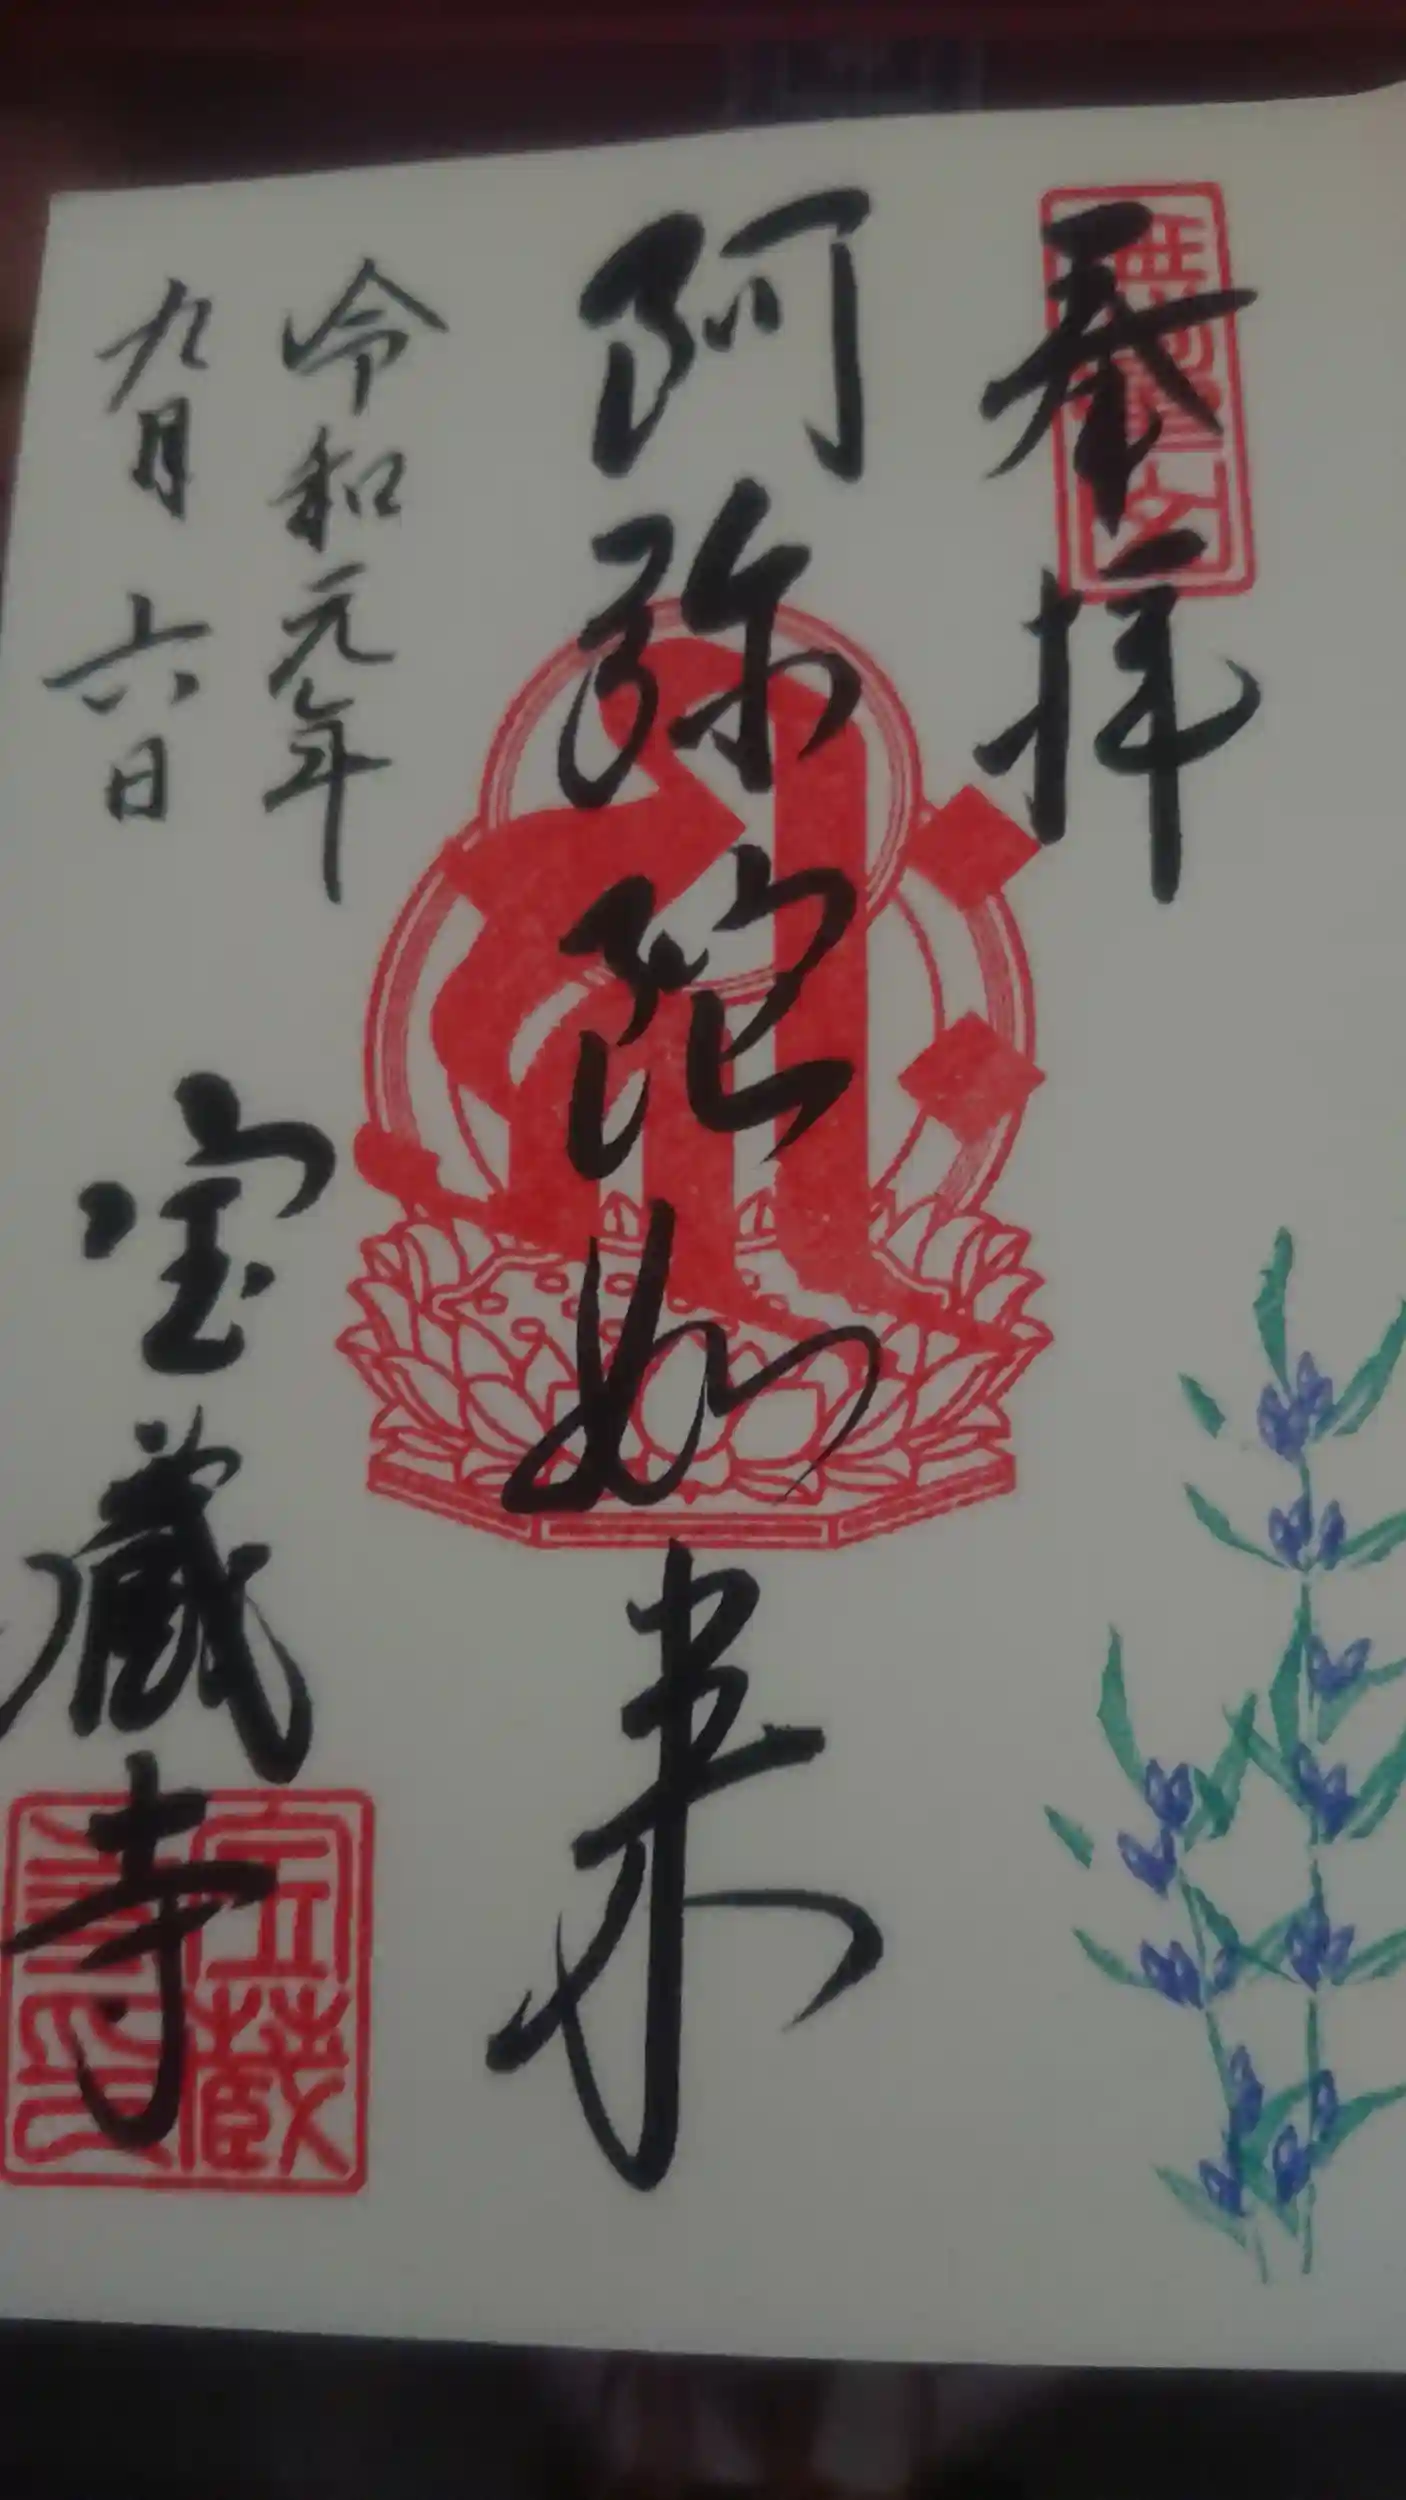 奉拝
阿弥陀如来
令和元年
九月六日
宝蔵寺